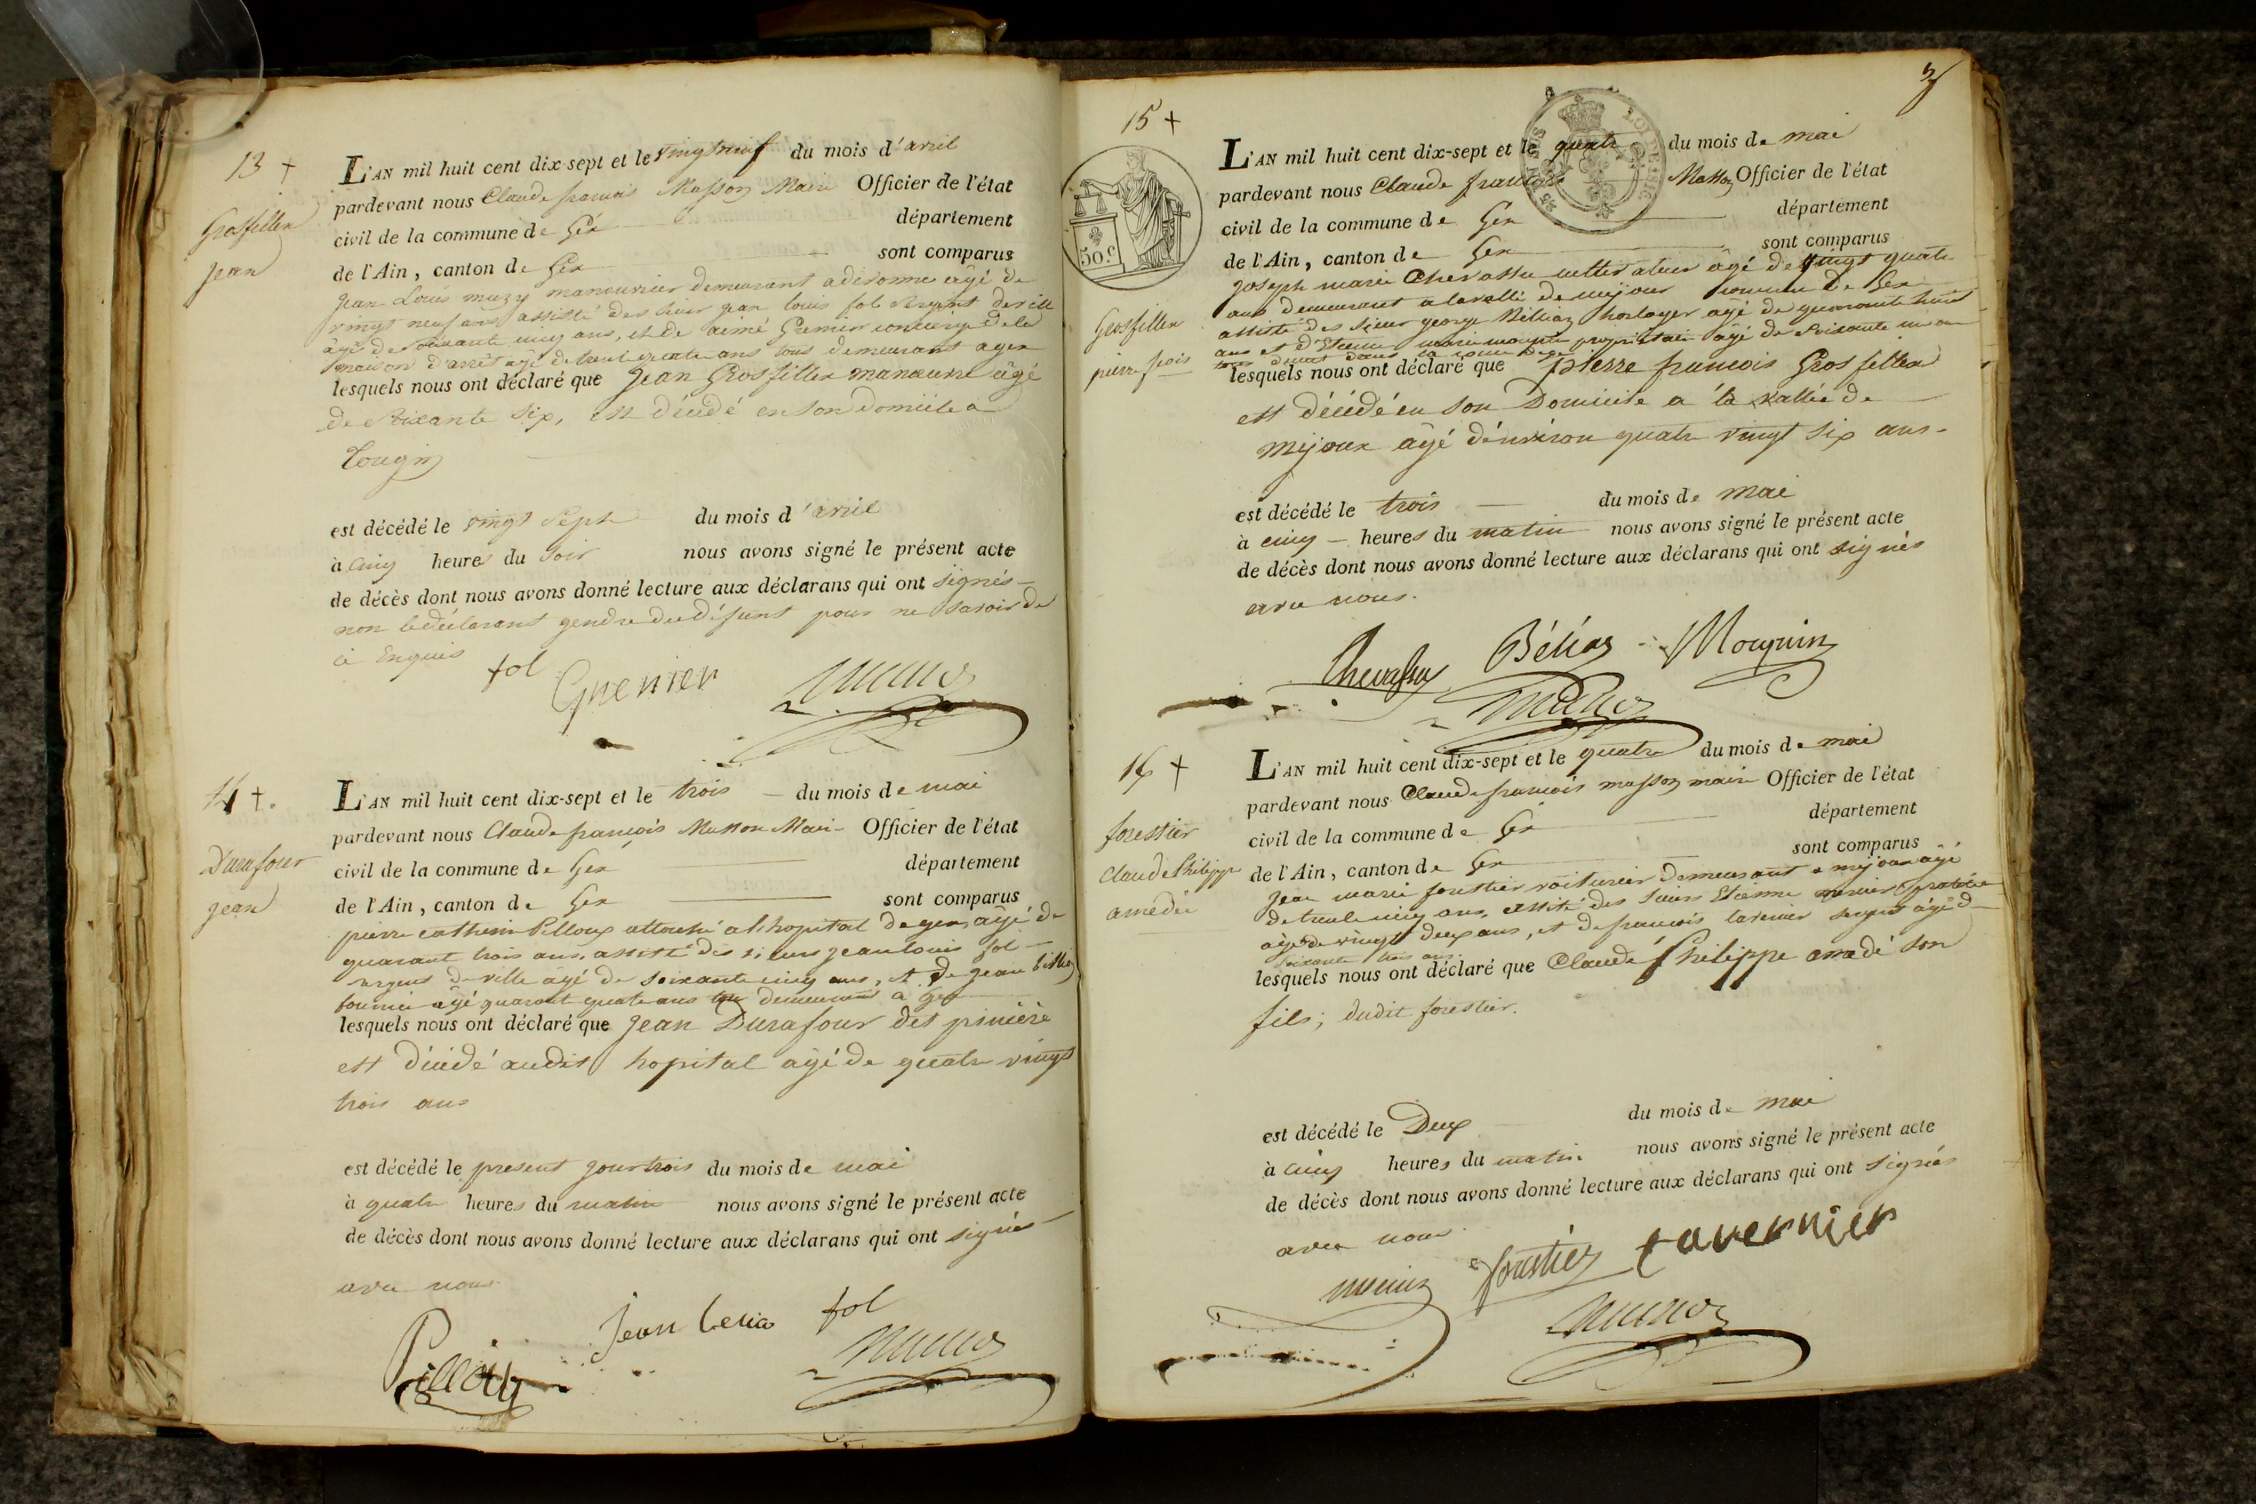 13 +
Grosfillex
jean
L'AN mil huit cent dix-sept et le vingt neuf du mois d'avril
pardevant nous Claude françois Masson Maire Officier de l'état
civil de la commune de Gex département
de l'Ain, canton de Gex sont comparus
jean Louis muzy manouvrier demeurant a divonne âgé de
vingt neuf ans assisté des sieur jean louis fol sergent de ville
âgé de soixante cinq ans, et de aimé Grenier concierge de la
maison d'arrêt agé de trente quatre ans tous demeurant a gex
lesquels nous ont déclaré que jean Grosfillex manœuvre âgé
de soixante six, est décédé en son domicile a
Tougin
est décédé le vingt sept du mois d'avril
à cinq heures du soir nous avons signé le présent acte
de décès dont nous avons donné lecture aux déclarans qui ont signés
non le déclarant gendre du défunt pour ne savoir de
ce Enquis
fol Grenier
14 +.
Durafour
jean
L'AN mil huit cent dix-sept et le trois du mois de mai
pardevant nous Claude françois Masson Maire Officier de l'état
civil de la commune de Gex département
de l'Ain, canton de Gex sont comparus
pierre catherin Pilloux attaché a l'hopital de gex, âgé de
quarant trois ans, assisté des sieurs jean louis fol
sergent de ville âgé de soixante cinq ans, et de jean
âgé quarant quatre ans demeurant à Gex
lesquels nous ont déclaré que jean Durafour dit
est décédé audit hopital âgé de quatre vingt
trois ans
est décédé le present jour trois du mois de mai
à quatre heures du matin nous avons signé le présent acte
de décès dont nous avons donné lecture aux déclarans qui ont signés
avec nous
Jean fol
Pilloux
3
15 +
50 c
Grosfillex
pierre fçois
L'AN mil huit cent dix-sept et le quatre du mois de mai
pardevant nous Claude françois Masson Officier de l'état
civil de la commune de Gex département
de l'Ain, canton de Gex sont comparus
joseph marie Chevassu cultivateur âgé de vingt quatre
ans demeurant a la vallée de mijoux commune de Gex
assisté des sieur george Béliaz horloger âgé de quarante huit
ans et d' propriétaire âgé de soixante
lesquels nous ont déclaré que pierre francois Grosfillex
est décédé en son Domicile a la vallée de
mijoux âgé d'environ quatre vingt six ans.
est décédé le trois du mois de mai
à cinq heures du matin nous avons signé le présent acte
de décès dont nous avons donné lecture aux déclarans qui ont signés
avec nous.
Chevassu Béliaz Mouquin
16 +
forestier
claude Philippe
amédée
L'AN mil huit cent dix-sept et le quatre du mois de mai
pardevant nous Claude françois masson maire Officier de l'état
civil de la commune de Gex département
de l'Ain, canton de Gex sont comparus
jean marie forestier voiturier demeurant a mijoux âgé
de trente cinq ans, assisté des sieurs Etienne mercier
âgé de vingt deux ans, et de francois tavernier âgé de
soixante trois ans
lesquels nous ont déclaré que Claude Philippe amedé son
fils; dudit forestier.
est décédé le Deux du mois de mai
à cinq heures du matin nous avons signé le présent acte
de décès dont nous avons donné lecture aux déclarans qui ont signés
avec nous
forestier tavernier